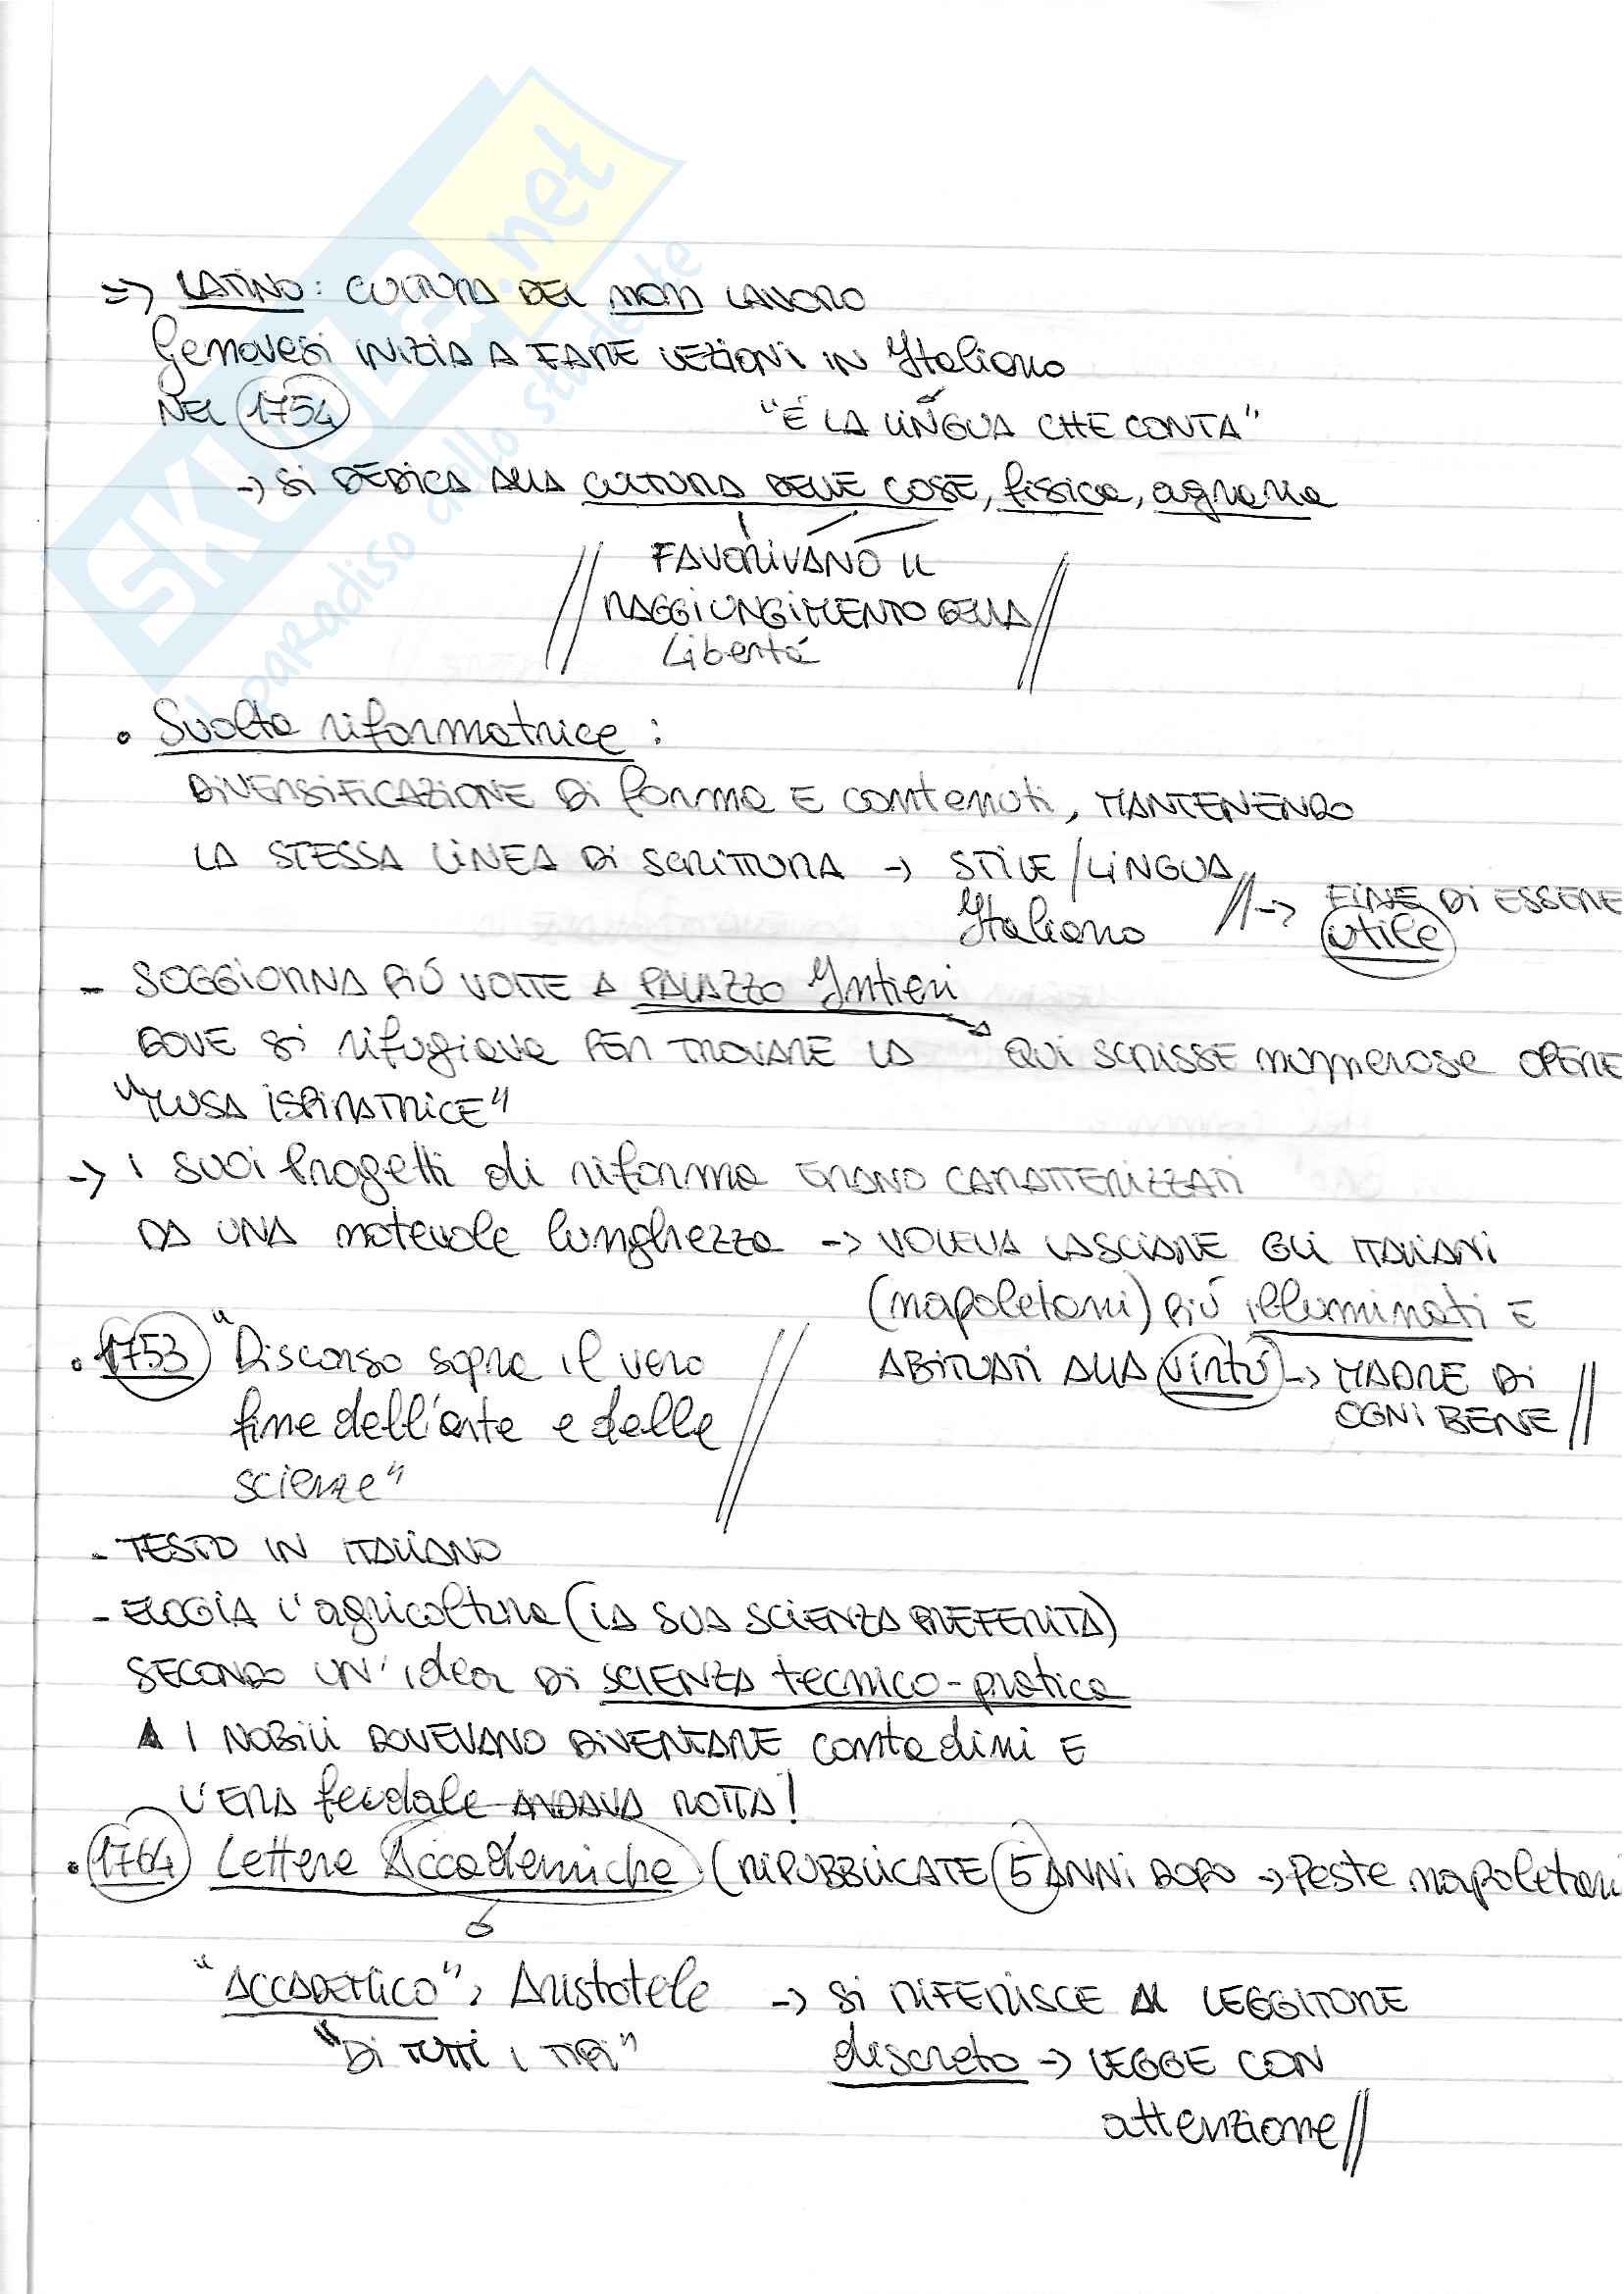 => LATINO: CULTURA DEL non LAVORO
Genovesi INIZIA A FARE LEZIONI IN Italiano
NEL 1754
"É LA LINGUA CHE CONTA"
-> Si DEDICA ALLA CULTURA DELLE COSE, fisica, agraria
FAVORIVANO IL
RAGGIUNGIMENTO DELLA
Libertá
• Svolta riformatrice:
DIVERSIFICAZIONE Di forma E contenuti, MANTENENDO
LA STESSA LINEA Di SCRITTURA -> STILE/LINGUA
Italiano // -> FINE Di ESSERE
utile
- SOGGIORNA PIÚ VOLTE A PALAZZO Intieri
DOVE Si rifugiava PER TROVARE LA QUI SCRISSE numerose OPERE
"MUSA ISPIRATRICE"
-> I suoi Progetti di riforma ERANO CARATTERIZZATI
DA UNA notevole lunghezza -> VOLEVA LASCIARE GLI ITALIANI
(napoletani) PIÚ illuminati E
ABITUATI ALLA virtú -> MADRE Di
OGNI BENE //
• 1753 "Discorso sopra il vero
fine dell'arte e delle
scienze" //
- TESTO IN ITALIANO
- ELOGIA L'agricoltura (LA SUA SCIENZA PREFERITA)
SECONDO UN'idea Di SCIENZA tecnico-pratica
I NOBILI DOVEVANO DIVENTARE contadini E
L'ERA feudale ANDAVA ROTTA!
• 1764 Lettere Accademiche (RIPUBBLICATE 5 ANNI DOPO -> Peste napoletani
"ACCADEMICO", Aristotele -> Si RIFERISCE AL LEGGITORE
"Di TUTTI I TIPI" discreto -> LEGGE CON
attenzione //
SKUOLA.net
il paradiso dello studente